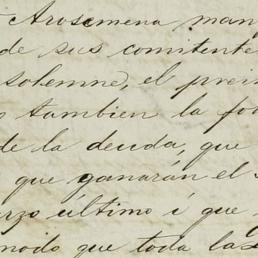 Arosemena man
de sus comitente
solemne, el pre
tambien la fo
de la deuda, que
que ganarán el
rzo último i que
modo que toda la